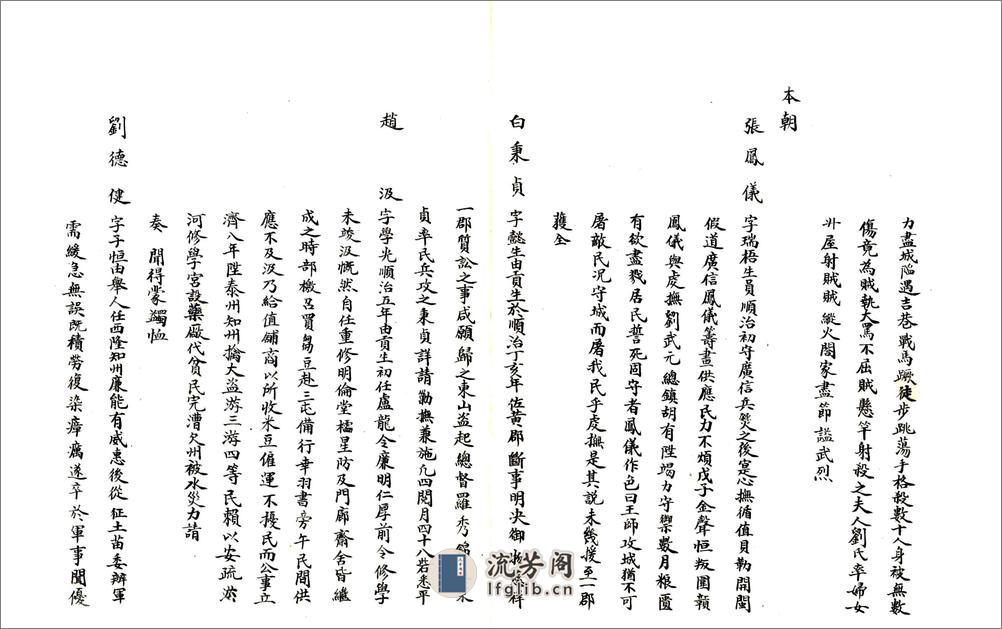 力盡城陷遇吉巷戰馬蹶徒步跳蕩手格殺數十人身被無數
傷竟為賊執大罵不屈賊懸竿射殺之夫人劉氏率婦女
升屋射賊賊縱火闔家盡節諡武烈
本朝
張鳳儀 字瑞梧生員順治初守廣信兵燹之後寔心撫循值貝勒開閩
假道廣信鳳儀籌畫供應民力不煩戊子金聲恒叛圍贛
鳳儀與虔撫劉武元總鎮胡有陞竭力守禦數月粮匱
有欲盡戮居民誓死固守者鳳儀作色曰王師攻城猶不可
屠敵民况守城而屠我民乎虔撫是其說未幾援至一郡
獲全
白秉貞 字懿生由貢生於順治丁亥年佐黃郡斷事明决御
一郡質訟之事咸願歸之東山盜起總督羅秀錦
貞率民兵攻之秉貞詳請勦撫兼施凢四閱月四十八砦悉平
趙汲 字學光順治五年由貢生初任盧龍令廉明仁厚前令修學
未竣汲慨然自任重修明倫堂櫺星防及門廊齋舍昏繼
成之時部檄召買芻豆赴三屯備行幸羽書旁午民間供
應不及汲乃給值鋪商以所收米豆僱運不擾民而公事立
濟八年陞泰州知州擒大盜游三游四等民賴以安疏淤
河修學宮設藥廠代貧民完漕欠州被水災力請
奏聞得蒙蠲恤
劉德健 字子恒由舉人任西隆知州廉能有威惠後從征土苗委辦軍
需緩急無誤既積勞復染瘴癘遂卒於軍事聞優